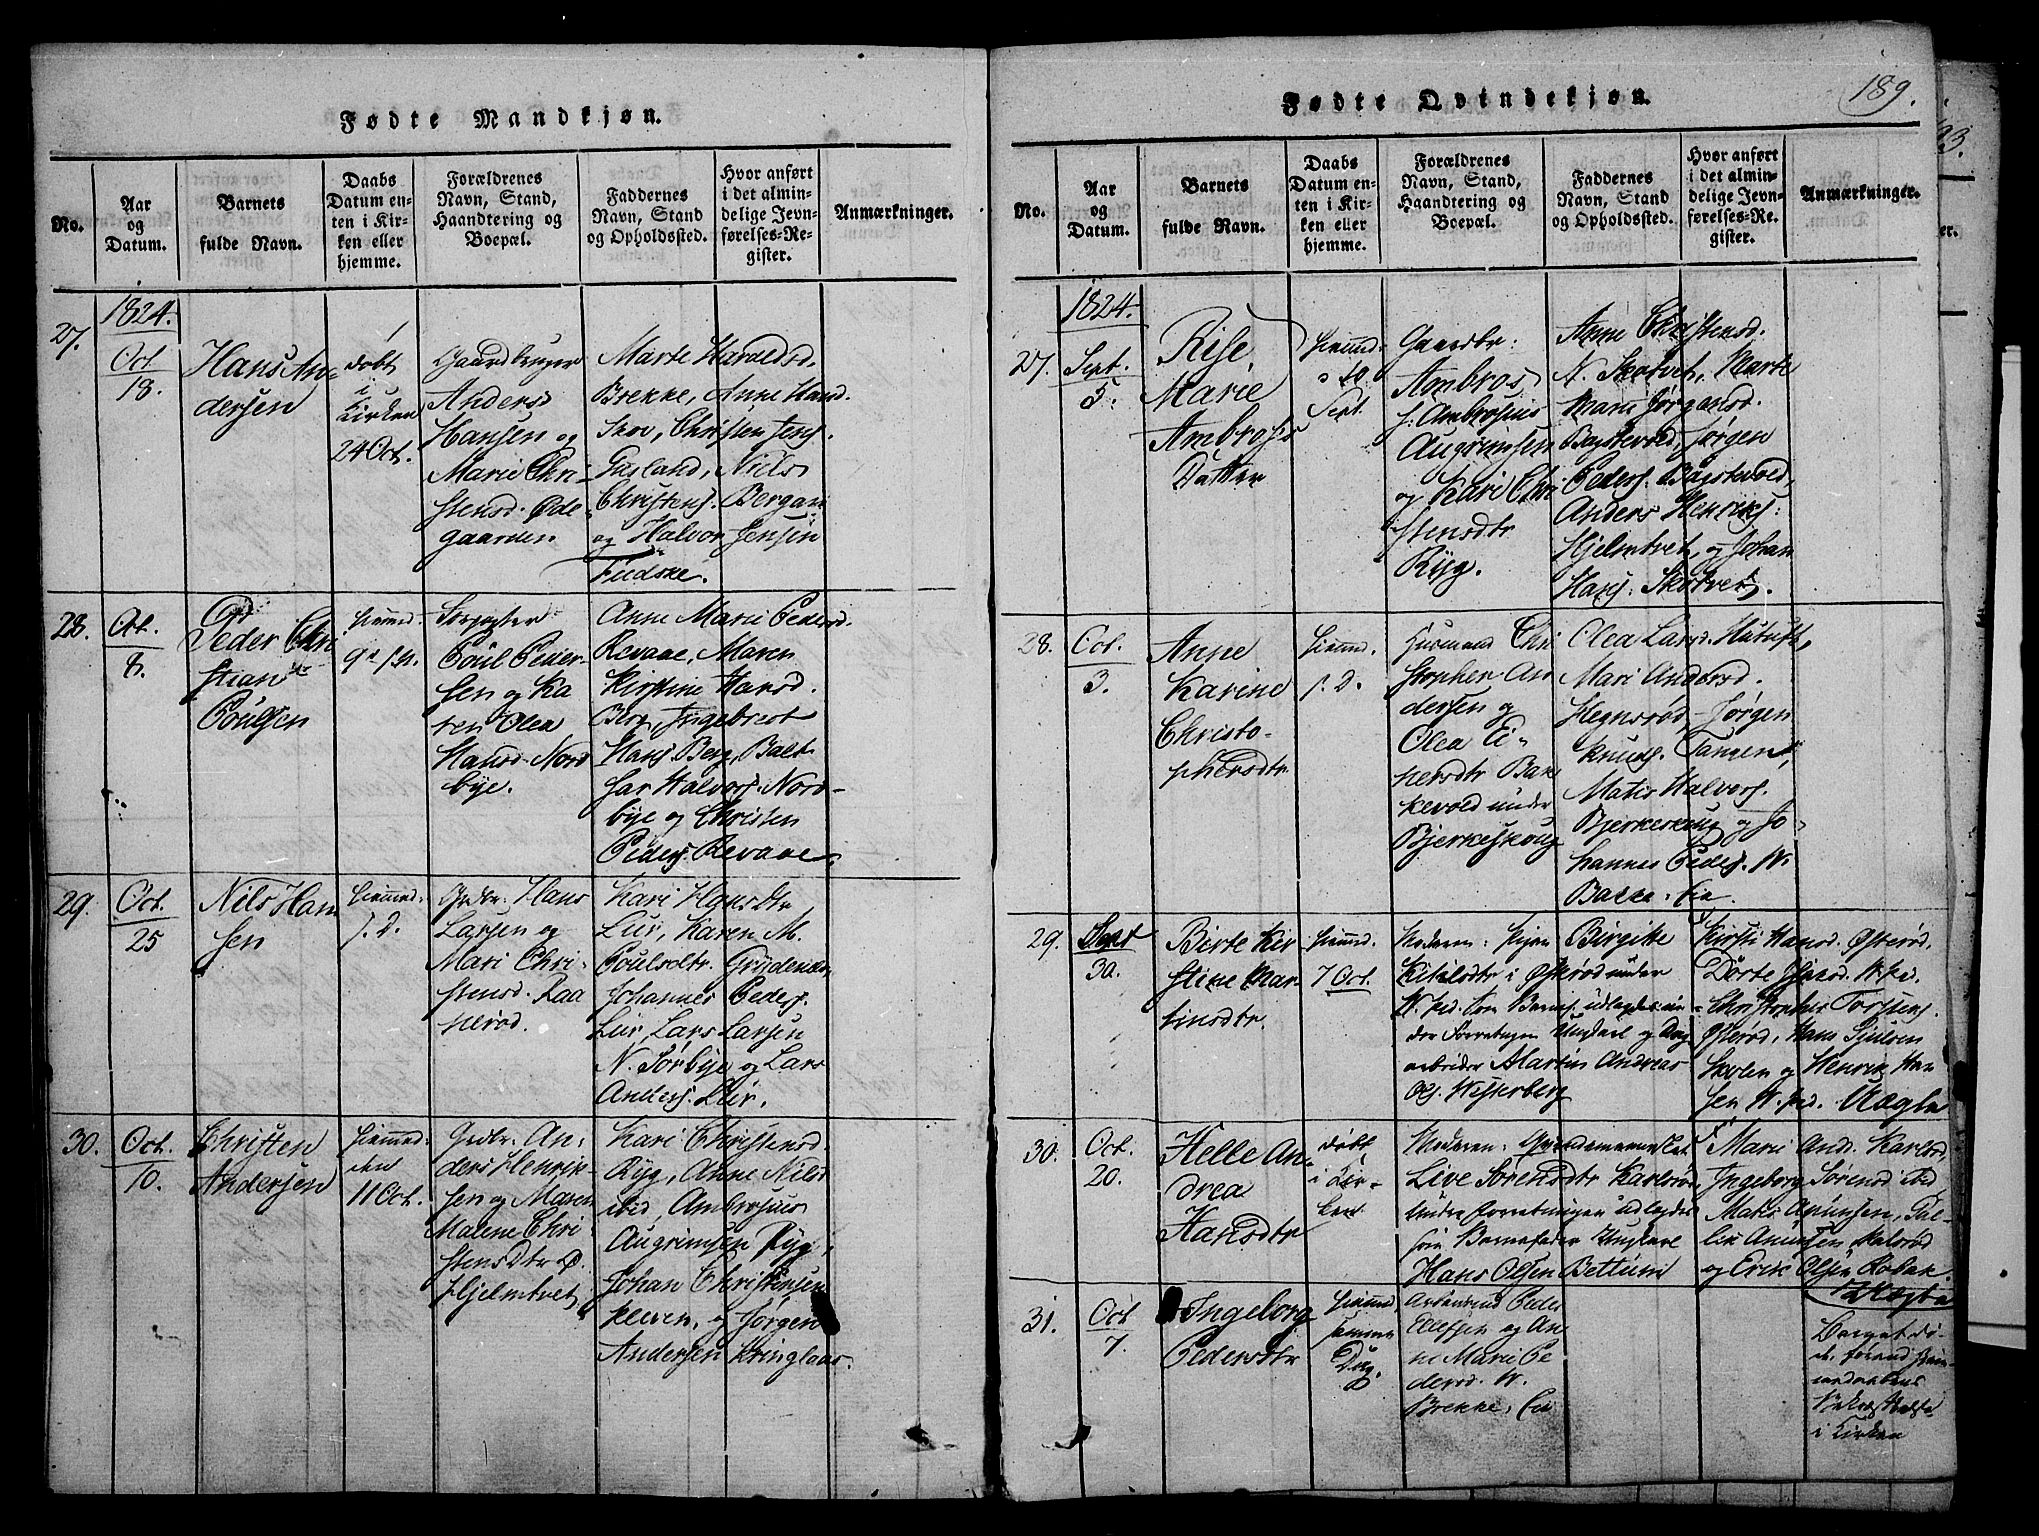 189.
Fødte Mandkjøn.
No.
Aar
og
Datum.
Barnets
fulde Navn.
Daabs
Datum en-
ten i Kir-
ken eller
hjemme.
Forældrenes
Navn, Stand,
Haandtering og
Boepæl.
Faddernes
Navn, Stand
og Opholdssted.
Hvor anført
i det almin-
delige Jevn-
førelses-Re-
gister.
Anmærkninger.
27.
1824.
Oct
18.
Hans An-
dersen
døbt
i
Kirken
24 Oct.
Gaardbruger
Anders
Hansen og
Marie Chri-
stensd. Øde-
gaarden
Marte Haraldsd.
Brekke, Anne Hansd.
Skov, Christen Jens.
Gasland, Niels
Christens. Bergan
og Halvor Jensen
Fudske.
28.
Oct.
8.
Peder Chri
stian
Poulsen
hiemd.
Poul Peder-
sen og Ka
ren Olea
Hansd. Nord
bye.
Anne Marie Pedersd.
Revaae, Maren
Kirstine Hansd.
Berg, Ingebreet
Hans. Berg, Balt
sar Halvors. Nord-
bye og Christen
Peders. Revaae.
29.
Oct.
25
Nils Han
sen
hiemd.
s. D.
Grdbr. Hans
Larsen og
Mari Chri-
stensd. Raa
nerød.
Kari Hans Dtr
Lur, Karen M.
Poulsdtr. Grydenæs
Johannes Peders.
Lur, Lars Larsen
N. Sørbye og Lars
Anders. Lur.
30.
Oct.
10.
Christen
Andersen
hiemmd:
den
11 Oct.
Grdbr. An-
ders Henrik-
sen og Maren
Malene Chri-
stens Dtr Ø.
Hjelmtvet
Kari Christensd
Ryg, Anne Nilsd
ibid, Ambrosius
Augrimsen Ryg,
Johan Christensen
Kleven, og Jørgen
Andersen Kringlaas.
Fødte Qvindekjøn.
No.
Aar
og
Datum.
Barnets
fulde Navn.
Daabs
Datum en-
ten i Kir-
ken eller
hjemme.
Forældrenes
Navn, Stand,
Haandtering og
Boepæl.
Faddernes
Navn, Stand
og Opholdssted.
Hvor anført
i det almin-
delige Jevn-
førelses-Re-
gister.
Anmærkninger.
27.
1824.
Sept.
5.
Rise
Marie
Ambros
Datter
hiemd.
Sept.
Gaardbr:
Ambros
s: Ambrosius
Augrimsen
og Kari Chri
stensdtr
Ryg.
Anne Christensd.
N. Skotvet, Marte
Marie Jørgensd.
Bagstevold, Jørgen
Peders. Bagstevold,
Anders Henriks:
Hjelmtvet, og Johan
Hans. Skotvet.
28.
Oct.
3.
Anne
Karine
Christo-
phersdtr
hiemd.
s. D.
Huusmand Chri
stopher An
dersen og
Olea Ei-
nersdtr Bak
kevold under
Bjerkeskoug
Olea Larsd.
Mari Andersd.
Hegnsrød, Jørgen
Knuds. Tangen,
Mats Halvors.
Bjerkeskoug og Jo-
hannes Peders. N.
Bakke. Eie
29.
Sept
30.
Birte Kir
stine Mar-
tinsdtr.
hiemd.
7 Oct.
Moderen: Pigen Birgitte
Ketilsdtr i Østerød under
udlagdes
Ungkarl og Dag
arbeider Martin Andreas
Ols.
Kirsti Hansd. Østerød,
Dorte
Christopher Torstens.
Østerød, Hans
Skolen og Henrik Han
sen
30.
Oct.
20.
Helle An
drea
Hansdtr
døbt
i Kir-
ken
Moderen:
Live Sørensdtr Karlsrød
udlagdes
som Barnefader Ungkarl
Hans Olsen Bettum
Mari And. Karlsrød
Ingeborg Sørensd ibid
Mats Amunsen,
Amunsen Kalsrød
og Erik Olsen Robak.
31.
Oct
7.
Ingeborg
Pedersdtr
hiemd
samme
Dag.
Peder
Ellefsen og An
ne Marie Pe
dersd. N.
Brekke, Eie
Barnet dø-
de,
i Kirken